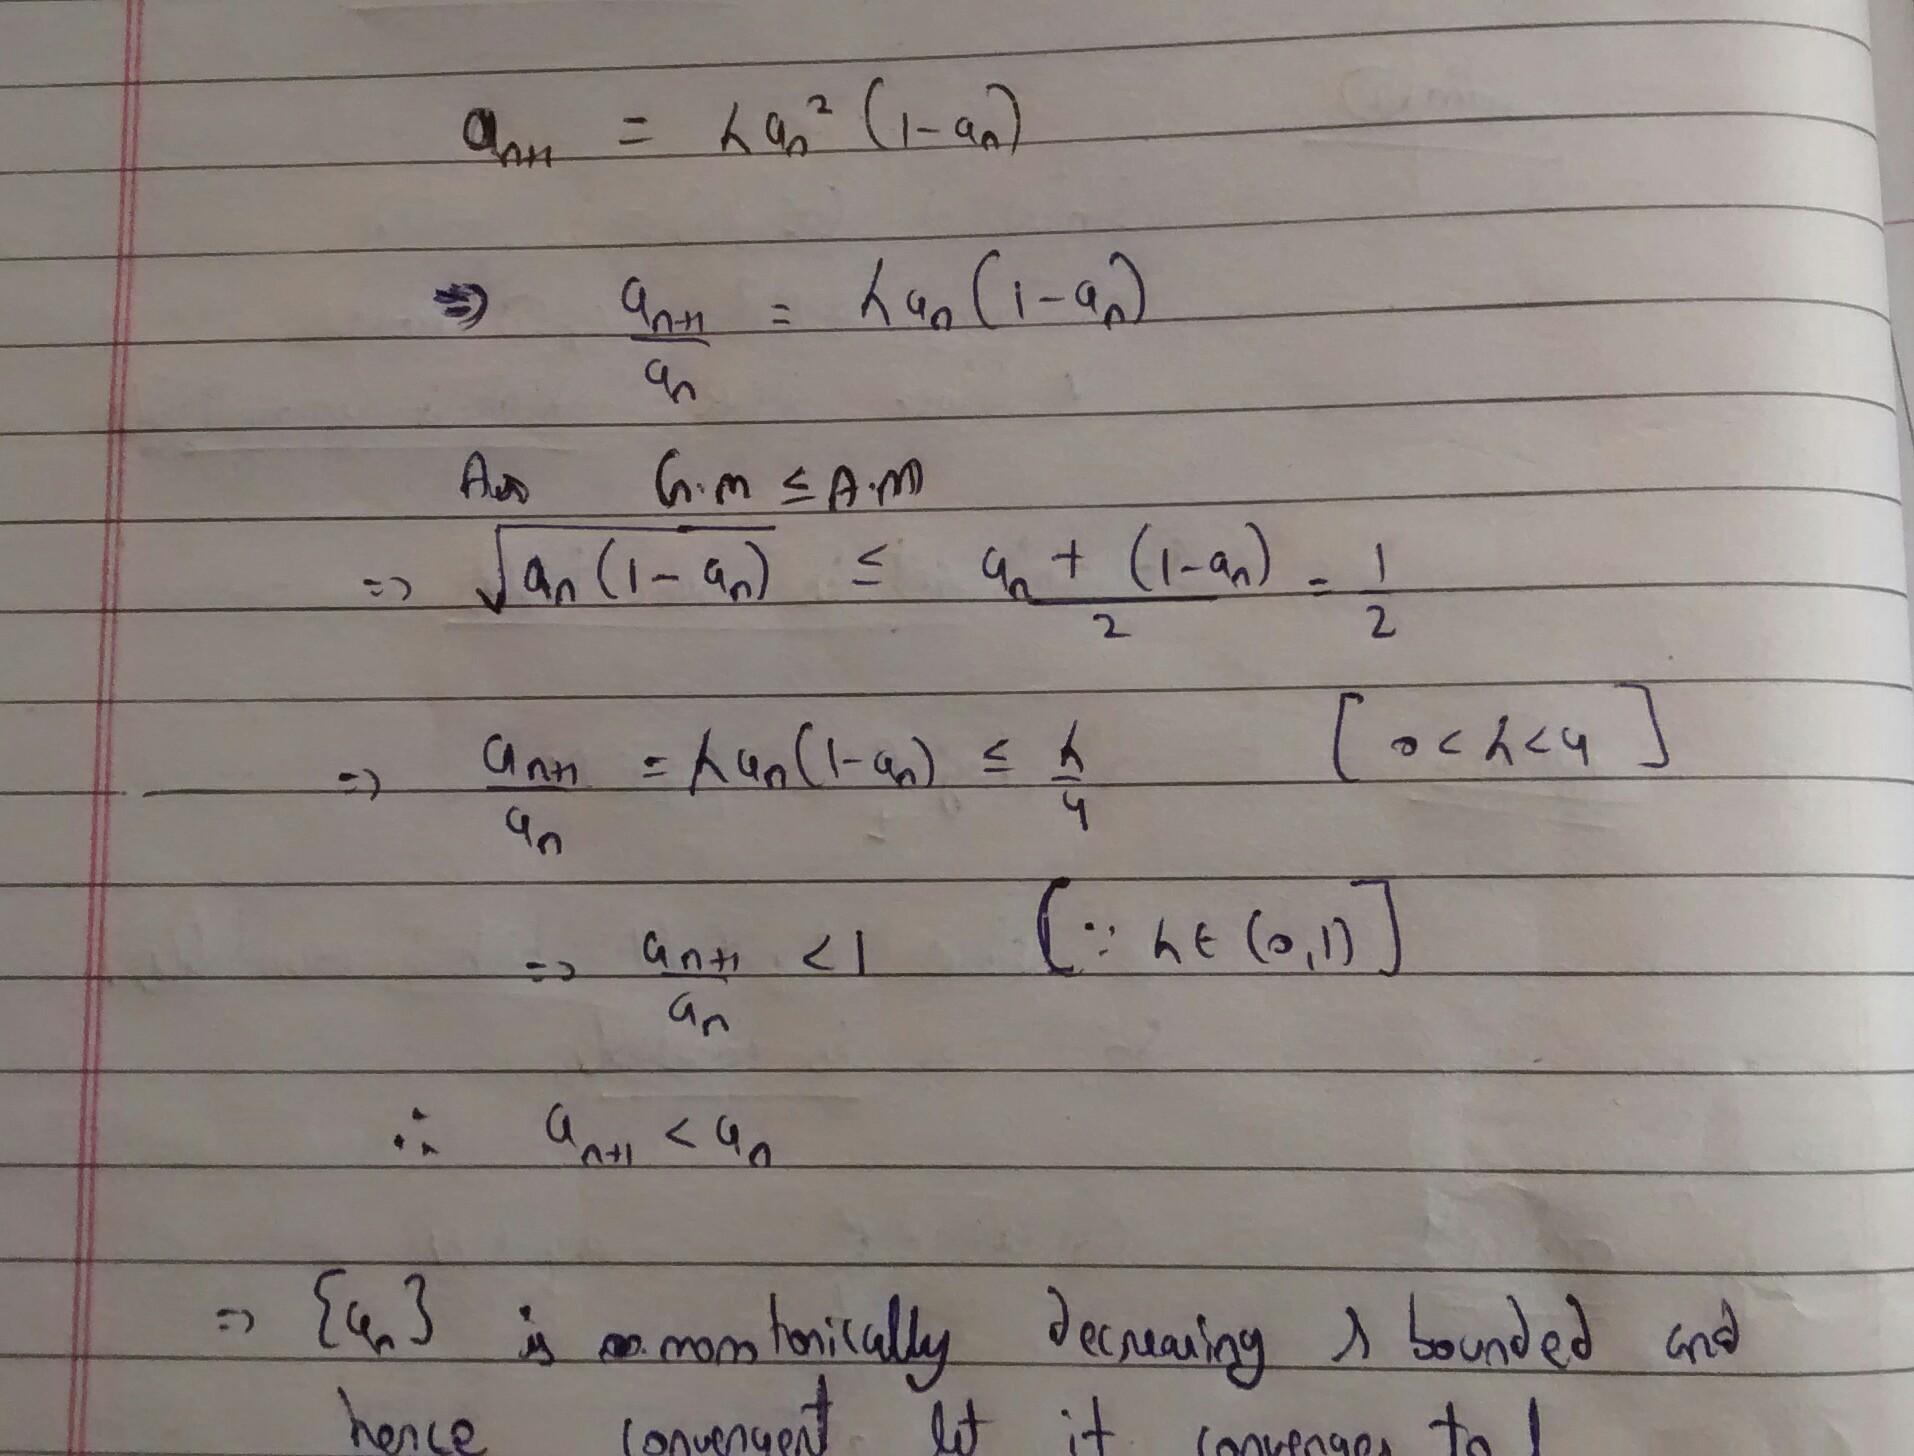 aₙ₊₁ = λaₙ² (1-aₙ)
⇒ aₙ₊₁/aₙ = λaₙ(1-aₙ)
As G.M ≤ A.M
=> √(aₙ(1-aₙ)) ≤ (aₙ + (1-aₙ))/2 = 1/2
=> aₙ₊₁/aₙ = λaₙ(1-aₙ) ≤ λ/4 [0<λ<4]
=> aₙ₊₁/aₙ <1 [∵ λ∈(0,1)]
∴ aₙ₊₁ < aₙ
=> {aₙ} is monotonically decreasing & bounded and
hence convergent let it converges to l